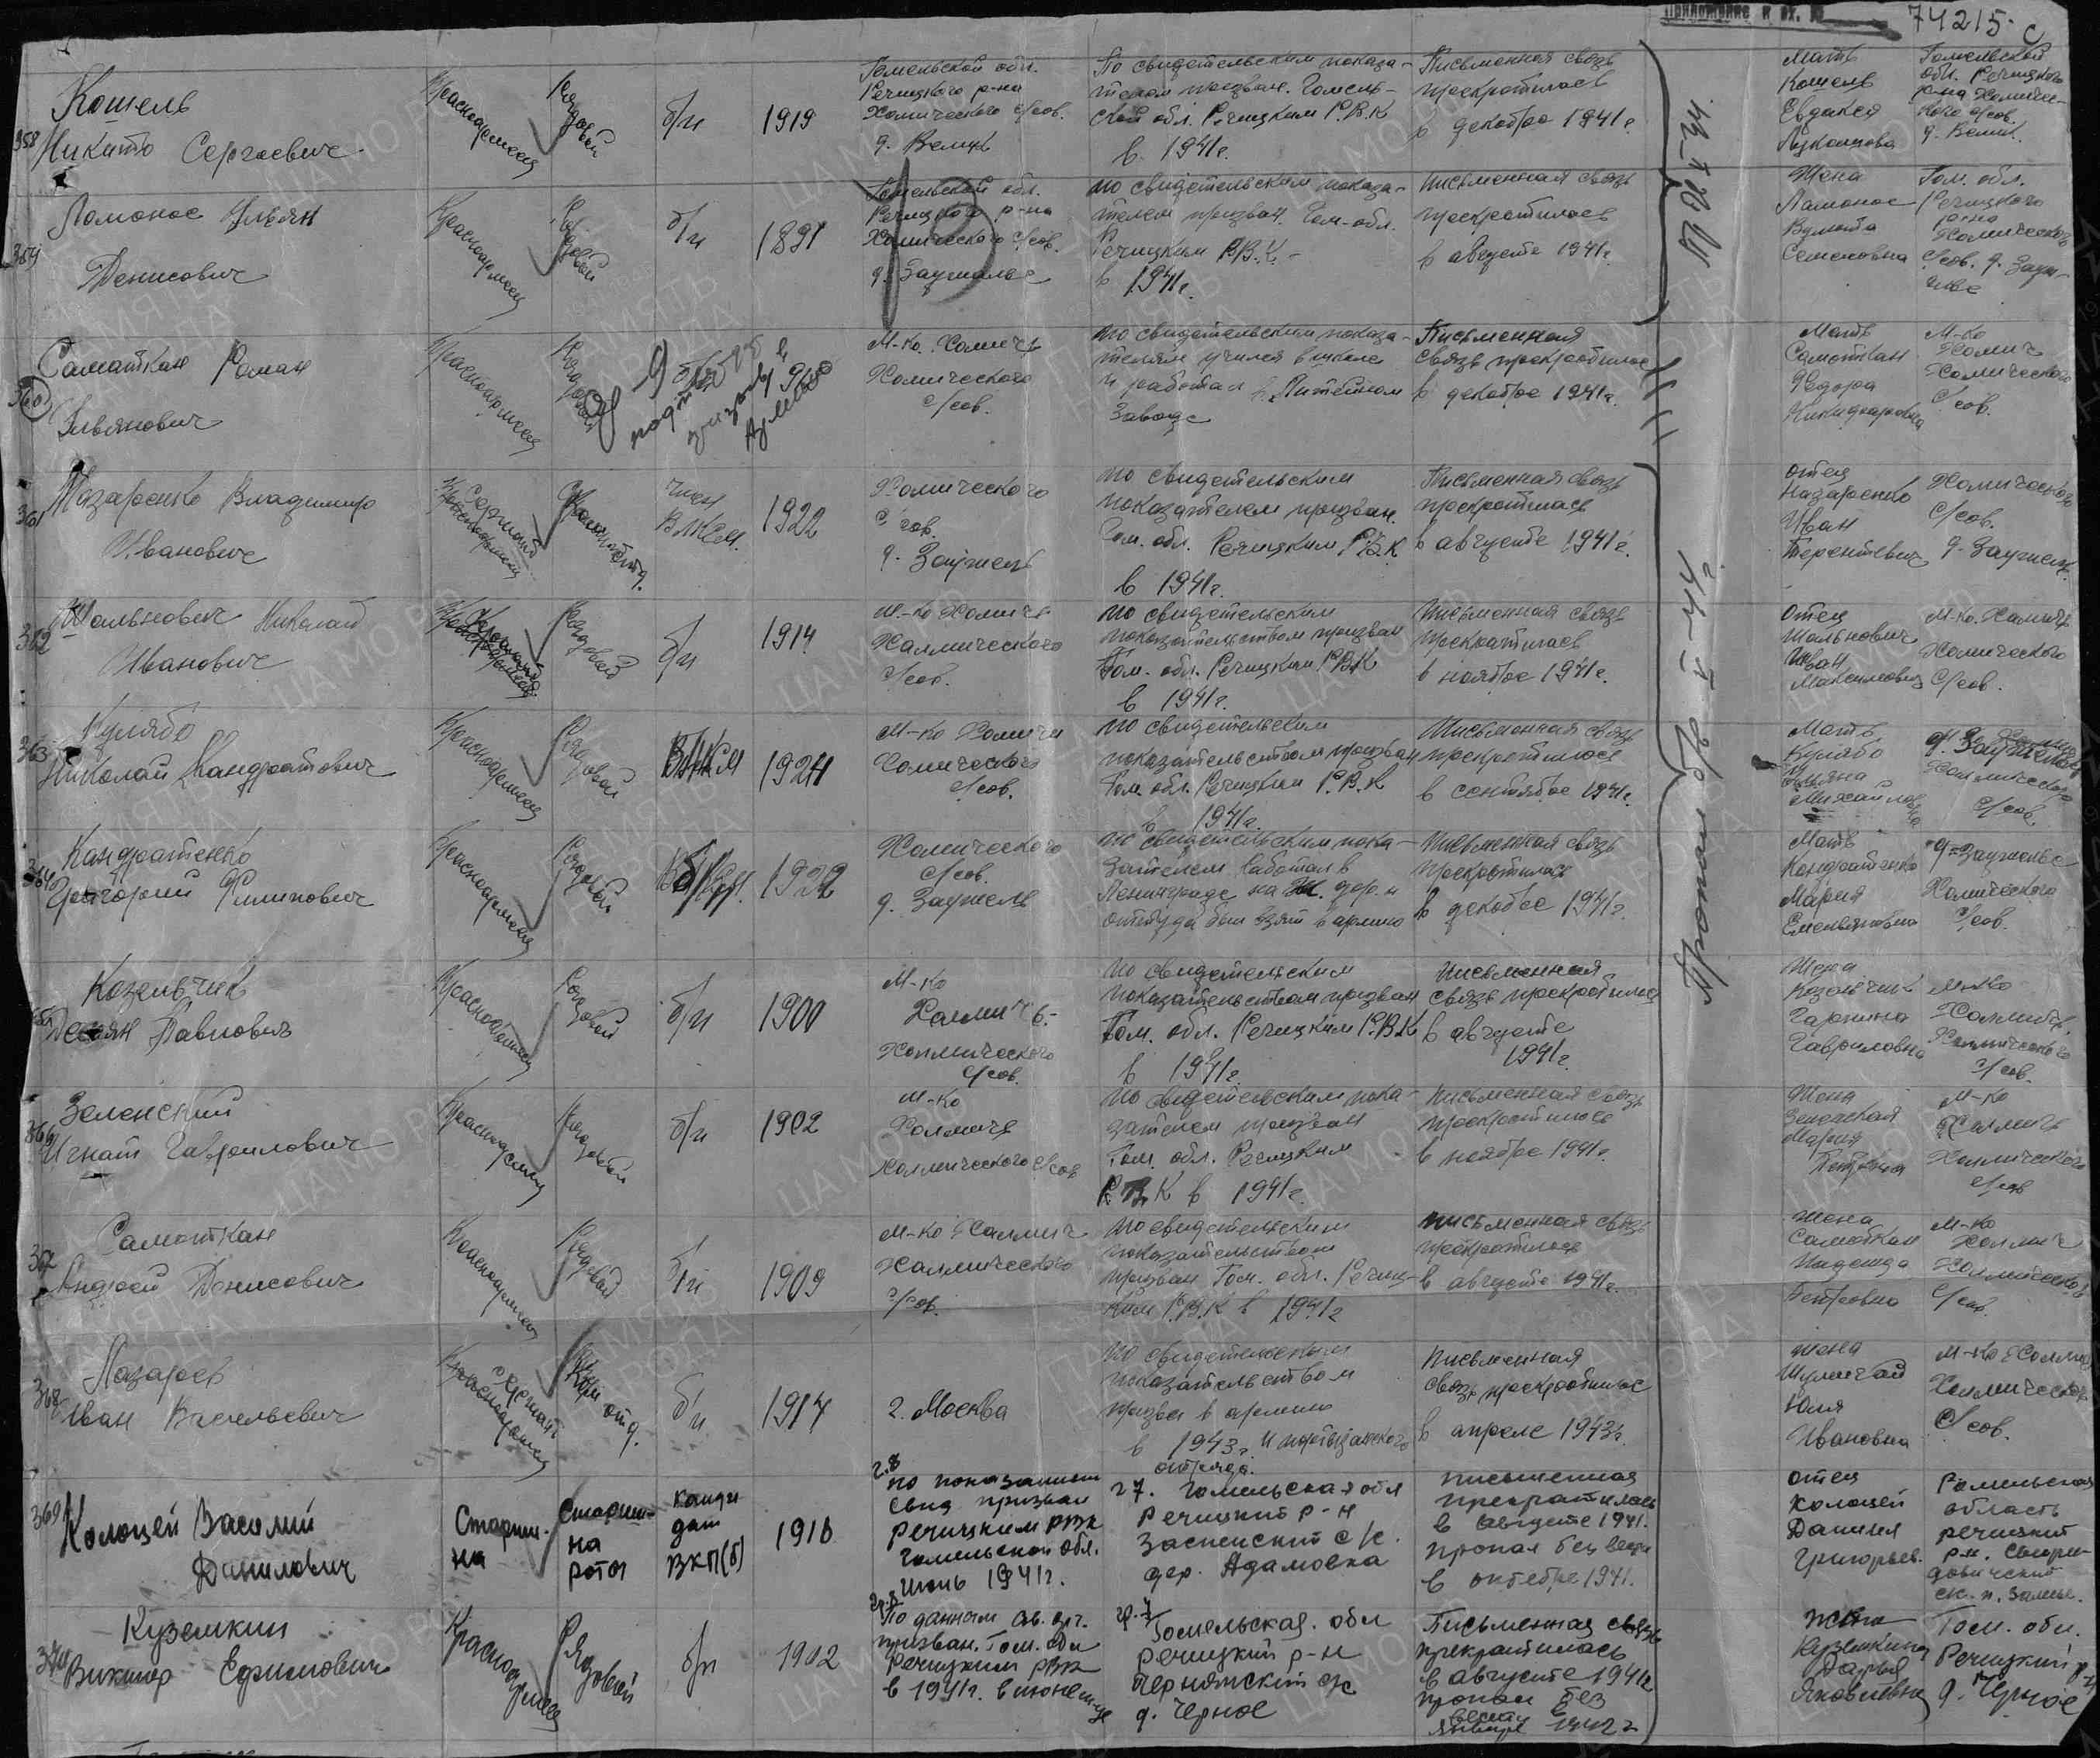 Приложение к вх. №
74215 с
358
Кошель
Никито Сергеевич
Красноармеец
Рядовой
б/п
1919
Гомельской обл.
Речицкого р-на
Холмического с/сов.
д. Велин
По свидетельским показа-
телем призван. Гомель-
ской обл. Речицким Р.В.К
в 1941г.
Письменная связь
прекратилась
в декабре 1941г.
Мать
Кошель
Евдакея
Гомельской
обл. Речицкого
р-на Холмиче-
кого с/сов.
д. Велин.
359
Ломонос Ульян
Денисович
Красноармеец
Рядовой
б/п
1891
Гомельской обл.
Речицкого р-на
Холмического с/сов.
д. Заужелье
по свидетельским показа-
телем призван. Гом. обл.
Речицким Р.В.К.
в 1941г.
Письменная связь
прекратилась
в августе 1941г.
Жена
Ломонос
Семеновна
Гом. обл.
Речицкого
р-на
Холмического
с/сов. д. Зауж-
360
Самоткан Роман
Ульянович
Красноармеец
Рядовой
М-ко. Холмичь
Холмического
с/сов.
по свидетельским показа-
телям учился в школе
и работал в Литейном
Заводе
Письменная
связь прекратилось
в декабре 1941г.
Мать
Самоткан
Федора
М-ко
Холмич
Холмического
с/сов.
361
Назаренко Владимир
Иванович
Сержант
Ком. отд.
член
ВЛКСМ.
1922
Холмического
с/сов.
д. Заужель
по свидетельским
показателем призван.
Гом. обл. Речицким Р.В.К.
в 1941г.
Письменная связь
прекратилась
в августе 1941г.
отец
Назаренко
Иван
Терентевич
Холмического
с/сов.
д. Заужель.
362
Шальнович Николай
Иванович
Рядовой
б/п
1914
М-ко Холмичь
Холмического
с/сов.
по свидетельским
показательством призван
Гом. обл. Речицким Р.В.К
в 1941г.
Письменная связь
прекратилась
в ноябре 1941г.
отец
Шальнович
Иван
Максимович
М-ко. Холмичь
Холмического
с/сов.
363
Кулябо
Николай Кандратович
Красноармеец
Рядовой
ВЛКСМ
М-ко Холмичи
Холмического
с/сов.
по свидетельским
показательством призван
Гом. обл. Речицким Р.В.К
в 1941г.
Письменная связь
прекратилось
в сентябре 1941г.
Мать
Кулябо
Ульяна
Михайловна
Холмического
с/сов.
364
Кандратенко
Григорий Филипович
Красноармеец
Рядовой
1922
Холмического
с/сов.
д. Заужель
по свидетельским пока-
зателем работал в
Ленинграде на ж. дор. и
оттуда был взят в армию
Письменная связь
прекратилась
в декабре 1941г.
Мать
Кондратенко
Мария
Емельяновна
д. Заужелье
Холмического
с/сов.
365
Козельчик
Демян Павлович
Красноармеец
Рядовой
б/п
1900
М-ко
Холмичь
Холмического
с/сов.
по свидетельским
показательством призван
Гом. обл. Речицким Р.В.К
в 1941г.
Письменная
связь прекратилась
в августе
1941г.
Жена
Козельчик
Гарпина
Гавриловна
М-ко
Холмичь.
Холмического
с/сов.
366
Зеленский
Игнат Гаврилович
Красноармеец
Рядовой
б/п
1902
М-ко
Холмичь
Холмического с/сов
по свидетельским пока-
зателем призван
Гом. обл. Речицким
Р.В.К в 1941г.
Письменная связь
прекратилось
в ноябре 1941г.
Жена
Зеленская
Мария
М-ко
Холмичь
Холмического
с/сов
367
Самоткан
Андрей Денисович
Красноармеец
Рядовой
б/п
1909
М-ко Холмич
Холмического
с/сов.
по свидетельским
показательством
призван Гом. обл. Речиц-
ким Р.В.К в 1941г
Письменная связь
прекратилось
в августе 1941г.
Жена
Самоткан
Надежда
Петровна
М-ко
Холмич
Холмического
с/сов.
368
Лазарев
Иван Васильевич
Сержант
Ком отд.
б/п
1914
г. Москва
по свидетельским
показательством
призван в армию
в 1943г. из партизанского
отряда.
Письменная
связь прекратилось
в апреле 1943г.
жена
Юля
Ивановна
М-ко Холмич
Холмического
с/сов.
369
Колоцей Василий
Данилович
Старши-
на
Старши-
на
роты
канди
дат
ВКП(б)
1918
г.8
по показаниям
свид призван
Речицким РВК
Гомельской обл.
Июнь 1941г.
г7. Гомельская обл
Речицкий р-н
Заспенский с/с.
дер. Адамовка
письменная
прекратилась
в августе 1941.
пропал без вести
в октябре 1941.
отец
Колоцей
Данила
Григорьев.
Гомельская
область
речицкий
р-н.
370
Куземкин
Виктор Ефимович
Красноармеец
Рядовой
б/п
1902
По данным св. вр.
призван. Гом. обл
Речицким РВК
в 1941г. в июне м-це
гр. 7
Гомельская. обл
речицкий р-н
Чернянский с/с
д. Черное
Письменная связь
прекратилась
в августе 1941г
пропал без
вести в
январе 1942г
жена
Куземкина
Дарья
Яковлевна
Гом. обл.
Речицкий р-н
д. Черное
Пропал б/в X-41г.